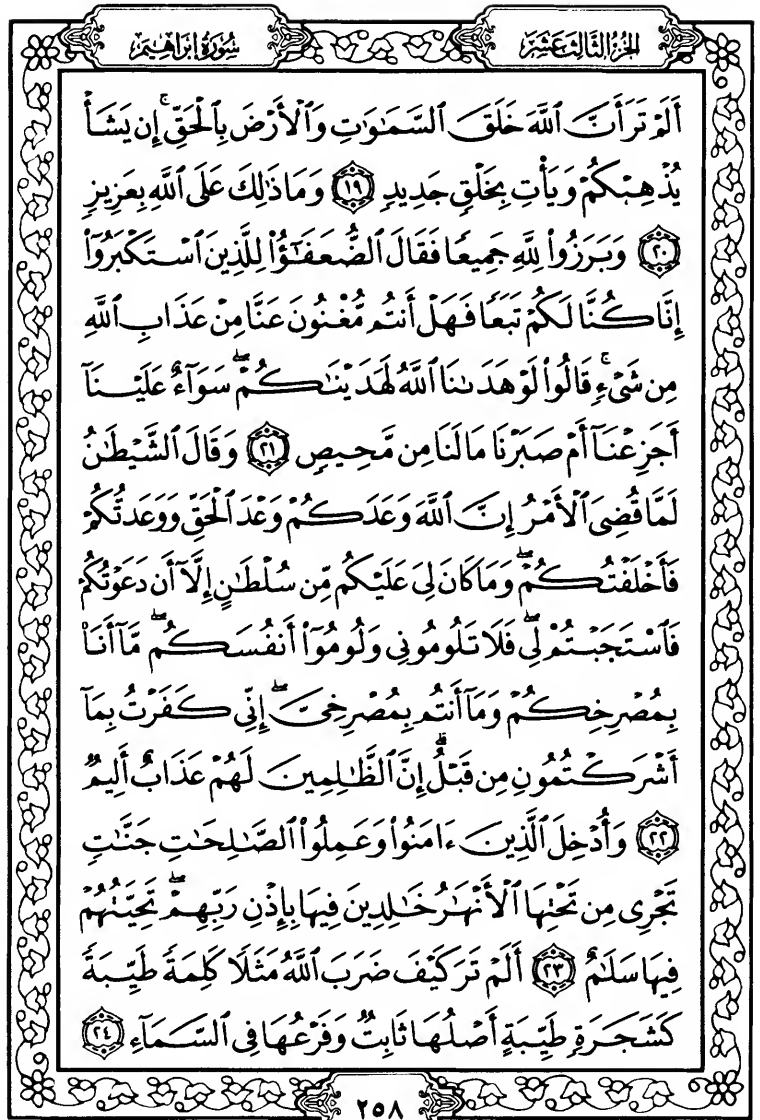 الجزء الثالث عشر
سُورَةُ إِبْرَاهِيم
أَلَمْ تَرَ أَنَّ ٱللَّهَ خَلَقَ ٱلسَّمَٰوَٰتِ وَٱلْأَرْضَ بِٱلْحَقِّ ۚ إِن يَشَأْ
يُذْهِبْكُمْ وَيَأْتِ بِخَلْقٍ جَدِيدٍ ١٩ وَمَا ذَٰلِكَ عَلَى ٱللَّهِ بِعَزِيزٍ
٢٠ وَبَرَزُوا۟ لِلَّهِ جَمِيعًا فَقَالَ ٱلضُّعَفَٰٓؤُا۟ لِلَّذِينَ ٱسْتَكْبَرُوٓا۟
إِنَّا كُنَّا لَكُمْ تَبَعًا فَهَلْ أَنتُم مُّغْنُونَ عَنَّا مِنْ عَذَابِ ٱللَّهِ
مِن شَىْءٍ ۚ قَالُوا۟ لَوْ هَدَىٰنَا ٱللَّهُ لَهَدَيْنَٰكُمْ ۖ سَوَآءٌ عَلَيْنَآ
أَجَزِعْنَآ أَمْ صَبَرْنَا مَا لَنَا مِن مَّحِيصٍ ٢١ وَقَالَ ٱلشَّيْطَٰنُ
لَمَّا قُضِىَ ٱلْأَمْرُ إِنَّ ٱللَّهَ وَعَدَكُمْ وَعْدَ ٱلْحَقِّ وَوَعَدتُّكُمْ
فَأَخْلَفْتُكُمْ ۖ وَمَا كَانَ لِىَ عَلَيْكُم مِّن سُلْطَٰنٍ إِلَّآ أَن دَعَوْتُكُمْ
فَٱسْتَجَبْتُمْ لِى ۖ فَلَا تَلُومُونِى وَلُومُوٓا۟ أَنفُسَكُم ۖ مَّآ أَنَا۠
بِمُصْرِخِكُمْ وَمَآ أَنتُم بِمُصْرِخِىَّ ۖ إِنِّى كَفَرْتُ بِمَآ
أَشْرَكْتُمُونِ مِن قَبْلُ ۗ إِنَّ ٱلظَّٰلِمِينَ لَهُمْ عَذَابٌ أَلِيمٌ
٢٢ وَأُدْخِلَ ٱلَّذِينَ ءَامَنُوا۟ وَعَمِلُوا۟ ٱلصَّٰلِحَٰتِ جَنَّٰتٍ
تَجْرِى مِن تَحْتِهَا ٱلْأَنْهَٰرُ خَٰلِدِينَ فِيهَا بِإِذْنِ رَبِّهِمْ ۖ تَحِيَّتُهُمْ
فِيهَا سَلَٰمٌ ٢٣ أَلَمْ تَرَ كَيْفَ ضَرَبَ ٱللَّهُ مَثَلًا كَلِمَةً طَيِّبَةً
كَشَجَرَةٍ طَيِّبَةٍ أَصْلُهَا ثَابِتٌ وَفَرْعُهَا فِى ٱلسَّمَآءِ ٢٤
٢٥٨